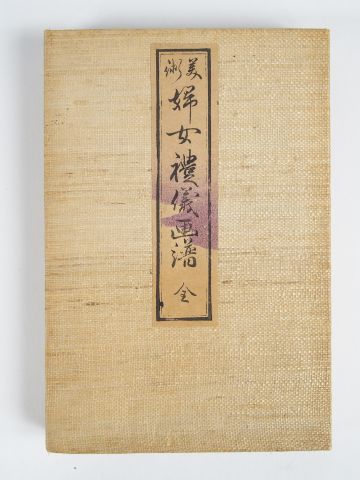 美術
婦女禮儀画譜
全